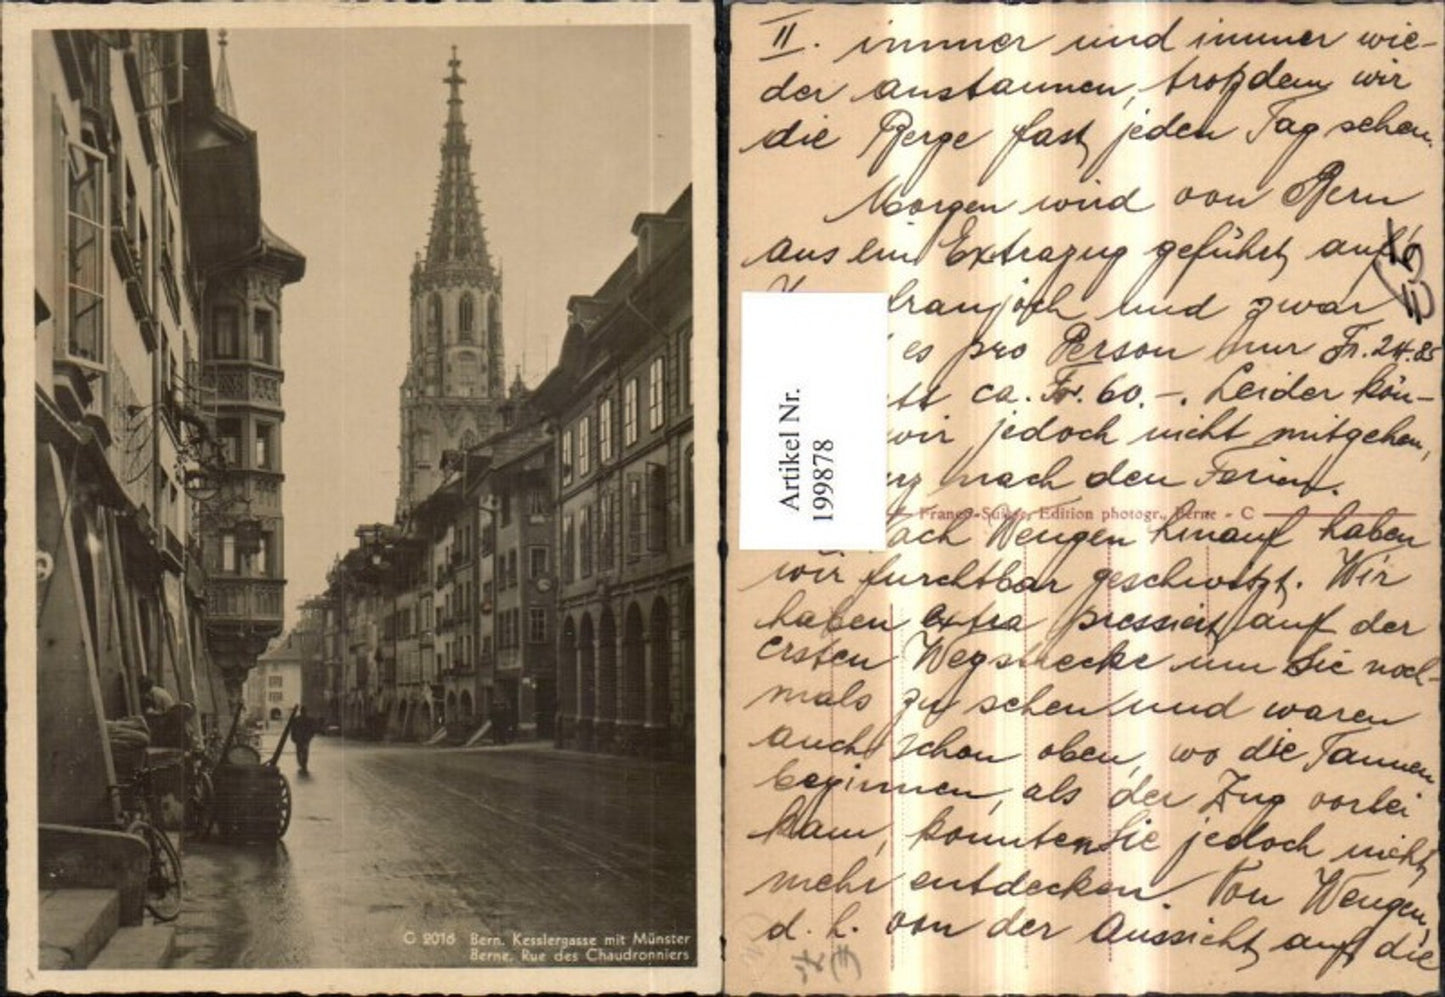 C 2016 Bern. Kesslergasse mit Münster
Berne. Rue des Chaudronniers
II. immer und immer wie-
der anstaunen, trotzdem wir
die Berge fast jeden Tag sehen.
Morgen wird von Bern
aus ein Extrazug geführt aufs
fraujoch und zwar
es pro Person nur Fr. 24.85
tt ca. Fr. 60.-. Leider kön-
wir jedoch nicht mitgehen,
rz nach den Ferien.
Artikel Nr.
199878
Franco-Suisse, Edition photogr., Berne - C
ach Wengen hinauf haben
wir furchtbar geschwitzt. Wir
haben extra pressiert auf der
ersten Wegstrecke um Sie noch-
mals zu sehen und waren
auch schon oben, wo die Tannen
beginnen, als der Zug vorbei
kam, konnten Sie jedoch nicht
mehr entdecken. Von Wengen,
d. h. von der Aussicht auf die